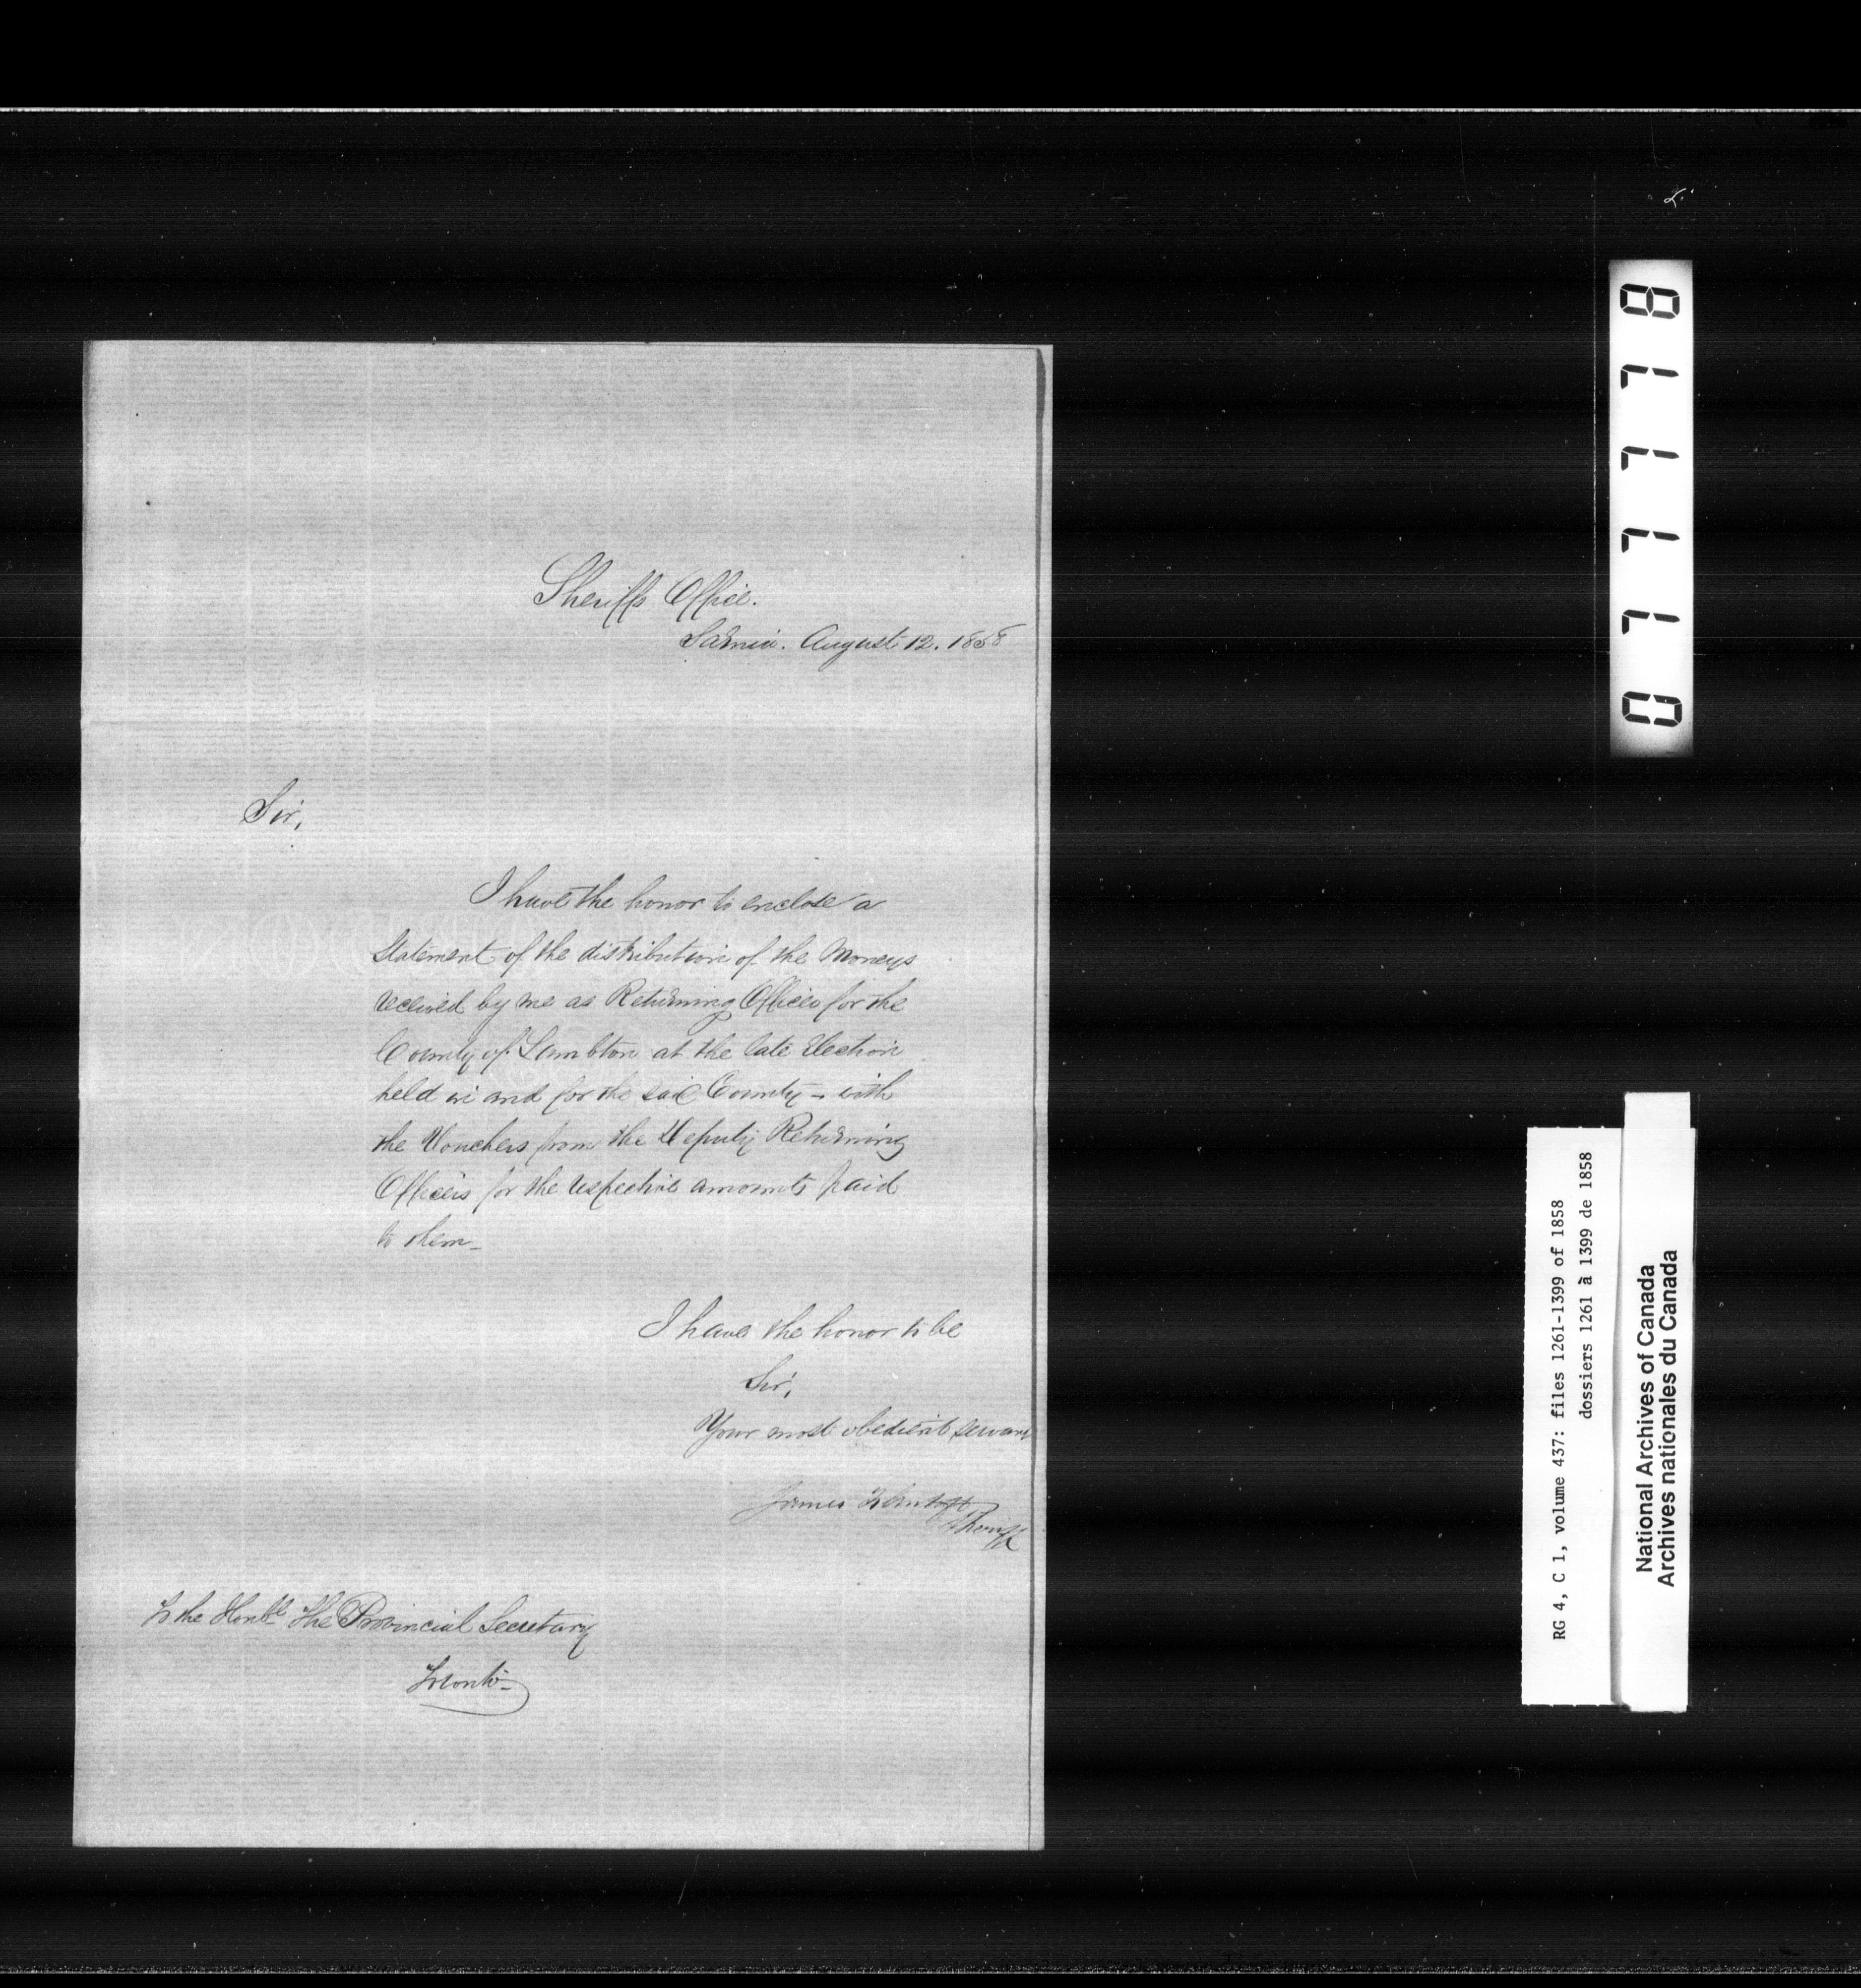 Sheriffs Office.
Sarnia. August 12. 1858
Sir,
I have the honor to enclose a
Statement of the distribution of the Moneys
received by me as Returning Officer for the
County of Lambton at the late Election
held in and for the said County - with
the Vouchers from the Deputy Returning
Officers for the respective amounts paid
to them_
I have the honor to be
Sir,
Your most obedient servant
James
Sheriff
To the Honble The Provincial Secretary
Toronto_
077778
RG 4, C 1, volume 437: files 1261-1399 of 1858
dossiers 1261 à 1399 de 1858
National Archives of Canada
Archives nationales du Canada